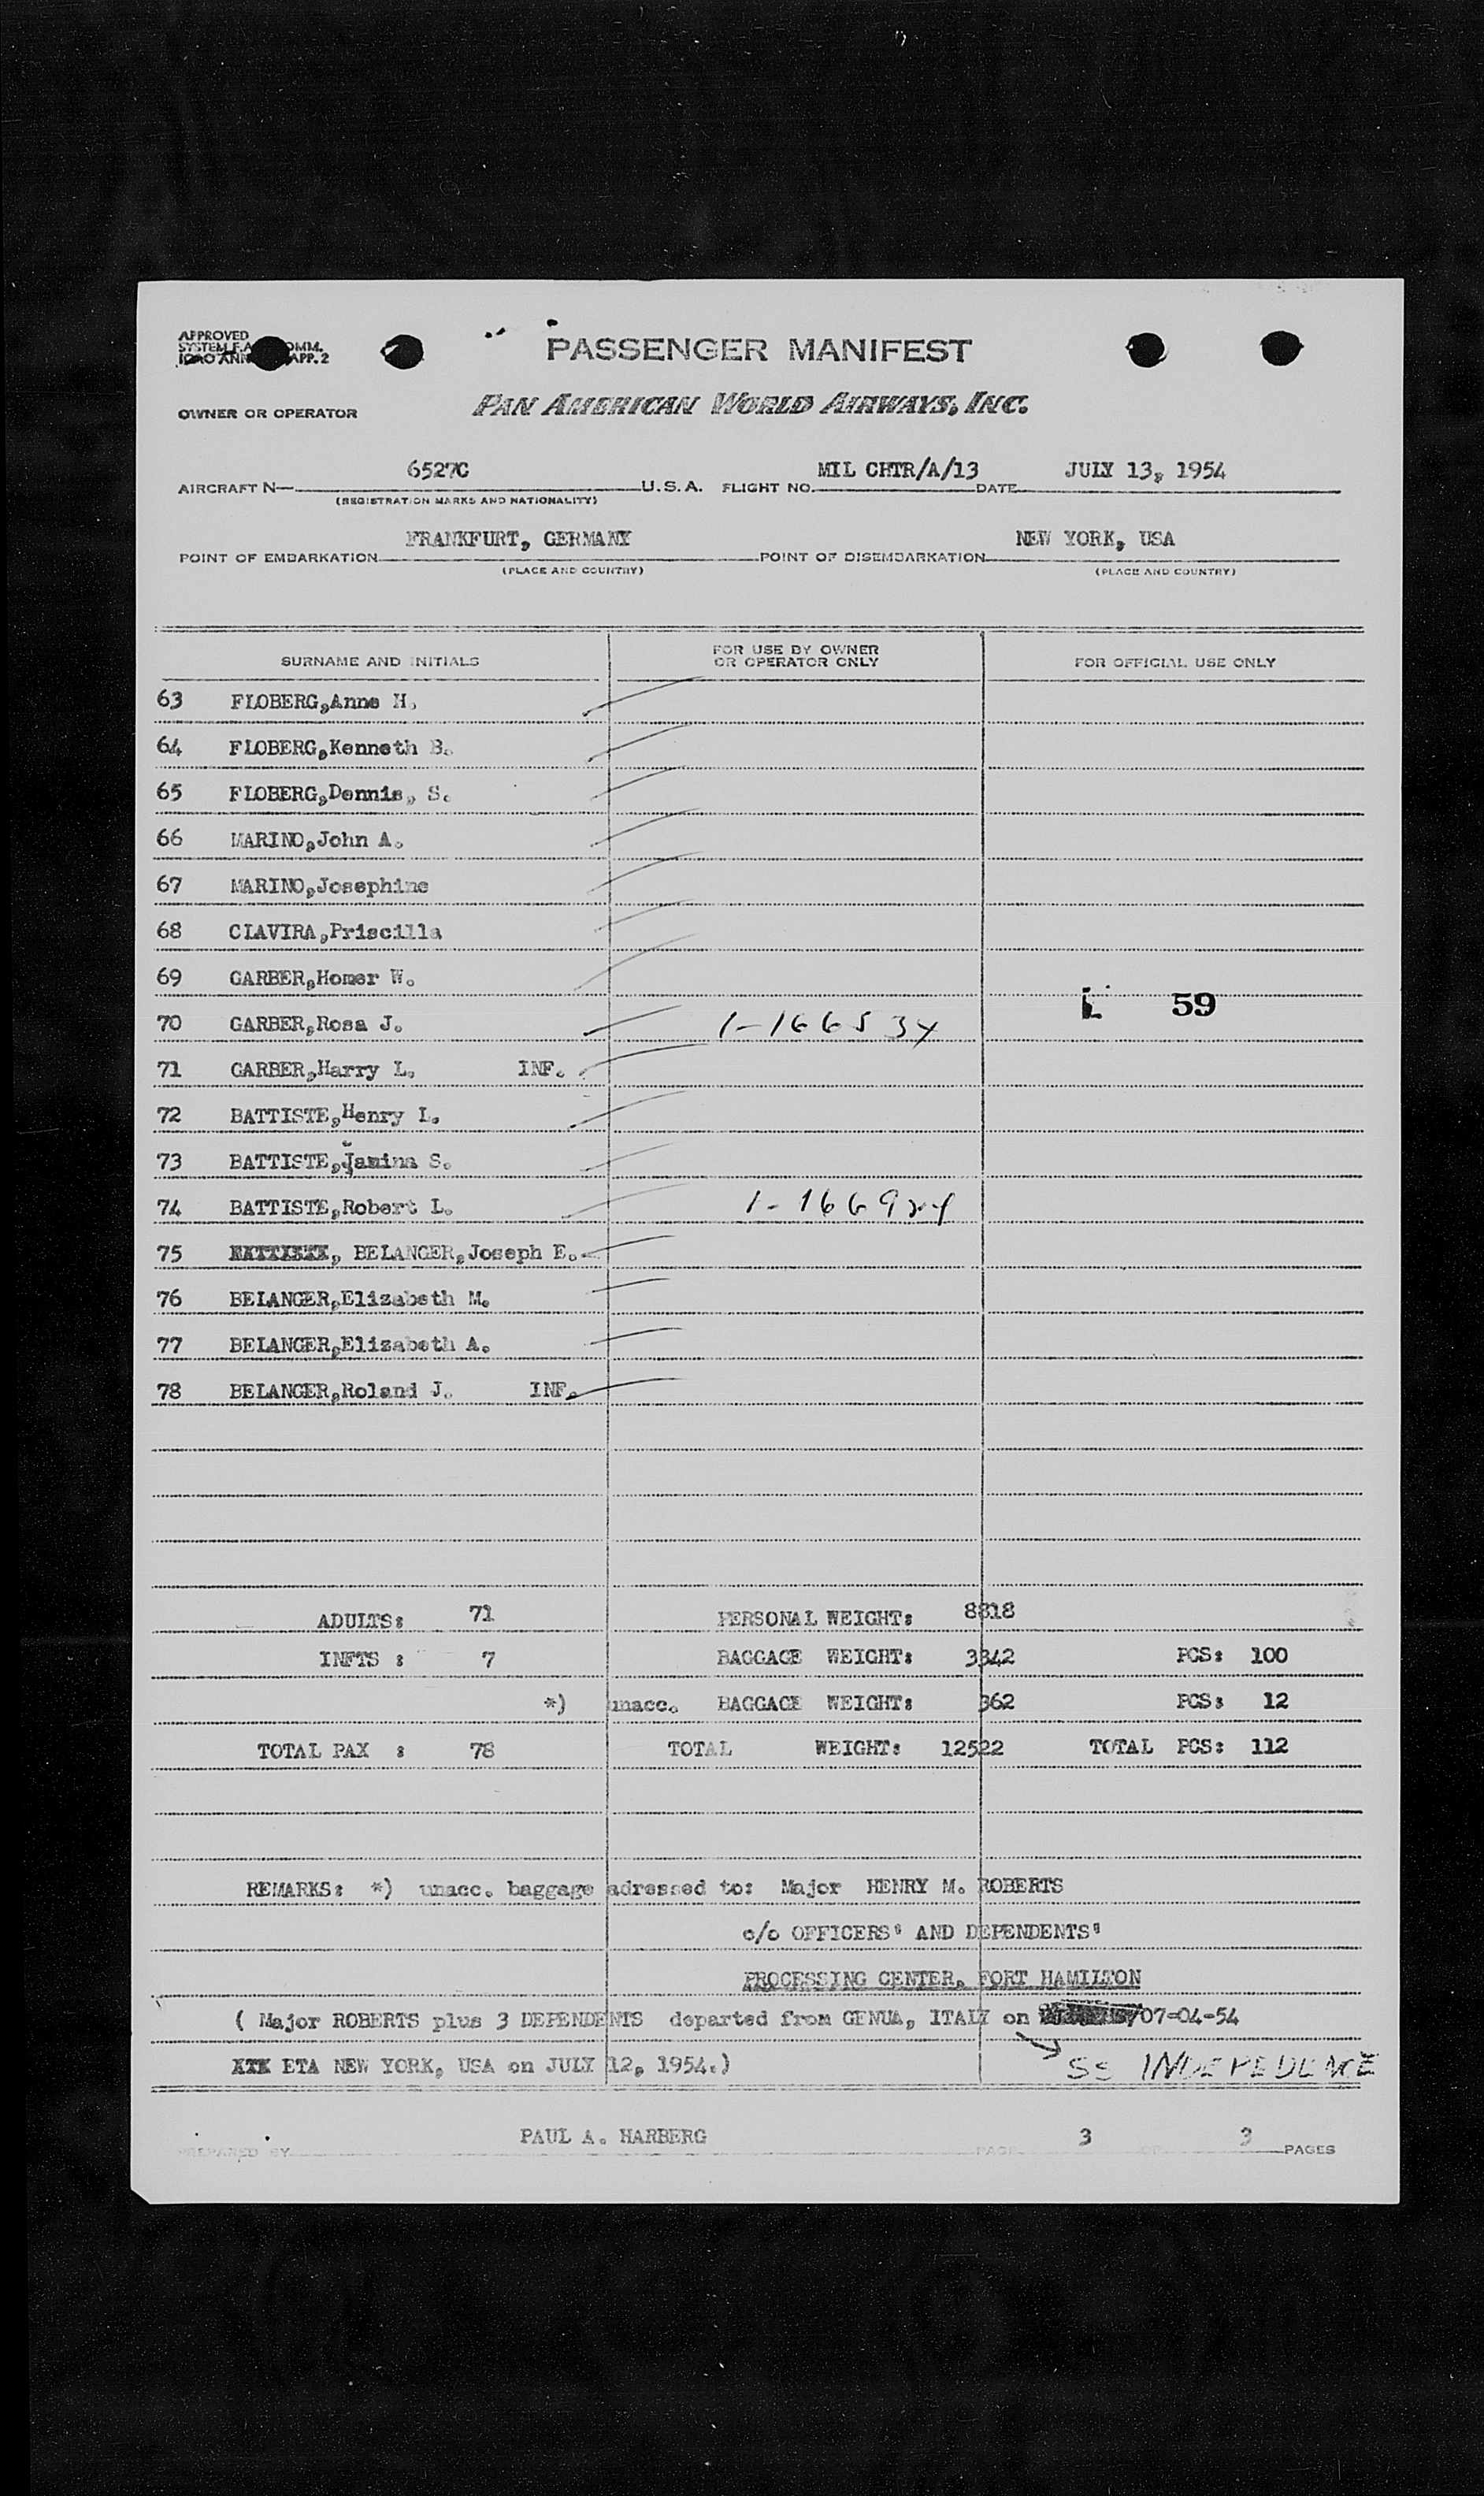 APPROVED
PASSENGER MANIFEST
OWNER OR OPERATOR PAN AMERICAN WORLD AIRWAYS, INC.
AIRCRAFT N— 6527C U.S.A. FLIGHT NO. MIL CHTR/A/13 DATE JULY 13, 1954
(REGISTRATION MARKS AND NATIONALITY)
POINT OF EMBARKATION FRANKFURT, GERMANY POINT OF DISEMBARKATION NEW YORK, USA
(PLACE AND COUNTRY) (PLACE AND COUNTRY)
SURNAME AND INITIALS FOR USE BY OWNER OR OPERATOR ONLY FOR OFFICIAL USE ONLY
63 FLOBERG,Anne H.
64 FLOBERG,Kenneth B.
65 FLOBERG,Dennis, S.
66 MARINO,John A.
67 MARINO,Josephine
68 CLAVIRA,Priscilla
69 GARBER,Homer W.
L 59
70 GARBER,Rosa J. 1-166534
71 GARBER,Harry L. INF.
72 BATTISTE,Henry L.
73 BATTISTE,Janina S.
74 BATTISTE,Robert L. 1-166924
75 BELANGER,Joseph E.
76 BELANGER,Elizabeth M.
77 BELANGER,Elizabeth A.
78 BELANGER,Roland J. INF.
ADULTS: 71 PERSONAL WEIGHT: 8818
INFTS : 7 BAGGAGE WEIGHT: 3342 PCS: 100
*) unacc. BAGGAGE WEIGHT: 362 PCS: 12
TOTAL PAX : 78 TOTAL WEIGHT: 12522 TOTAL PCS: 112
REMARKS: *) unacc. baggage adressed to: Major HENRY M. ROBERTS
c/o OFFICERS' AND DEPENDENTS'
PROCESSING CENTER, FORT HAMILTON
( Major ROBERTS plus 3 DEPENDENTS departed from GENUA, ITALY on 07-04-54
ETA NEW YORK, USA on JULY 12, 1954.) SS INDEPEDENCE
PREPARED BY PAUL A. HARBERG PAGE 3 OF 3 PAGES